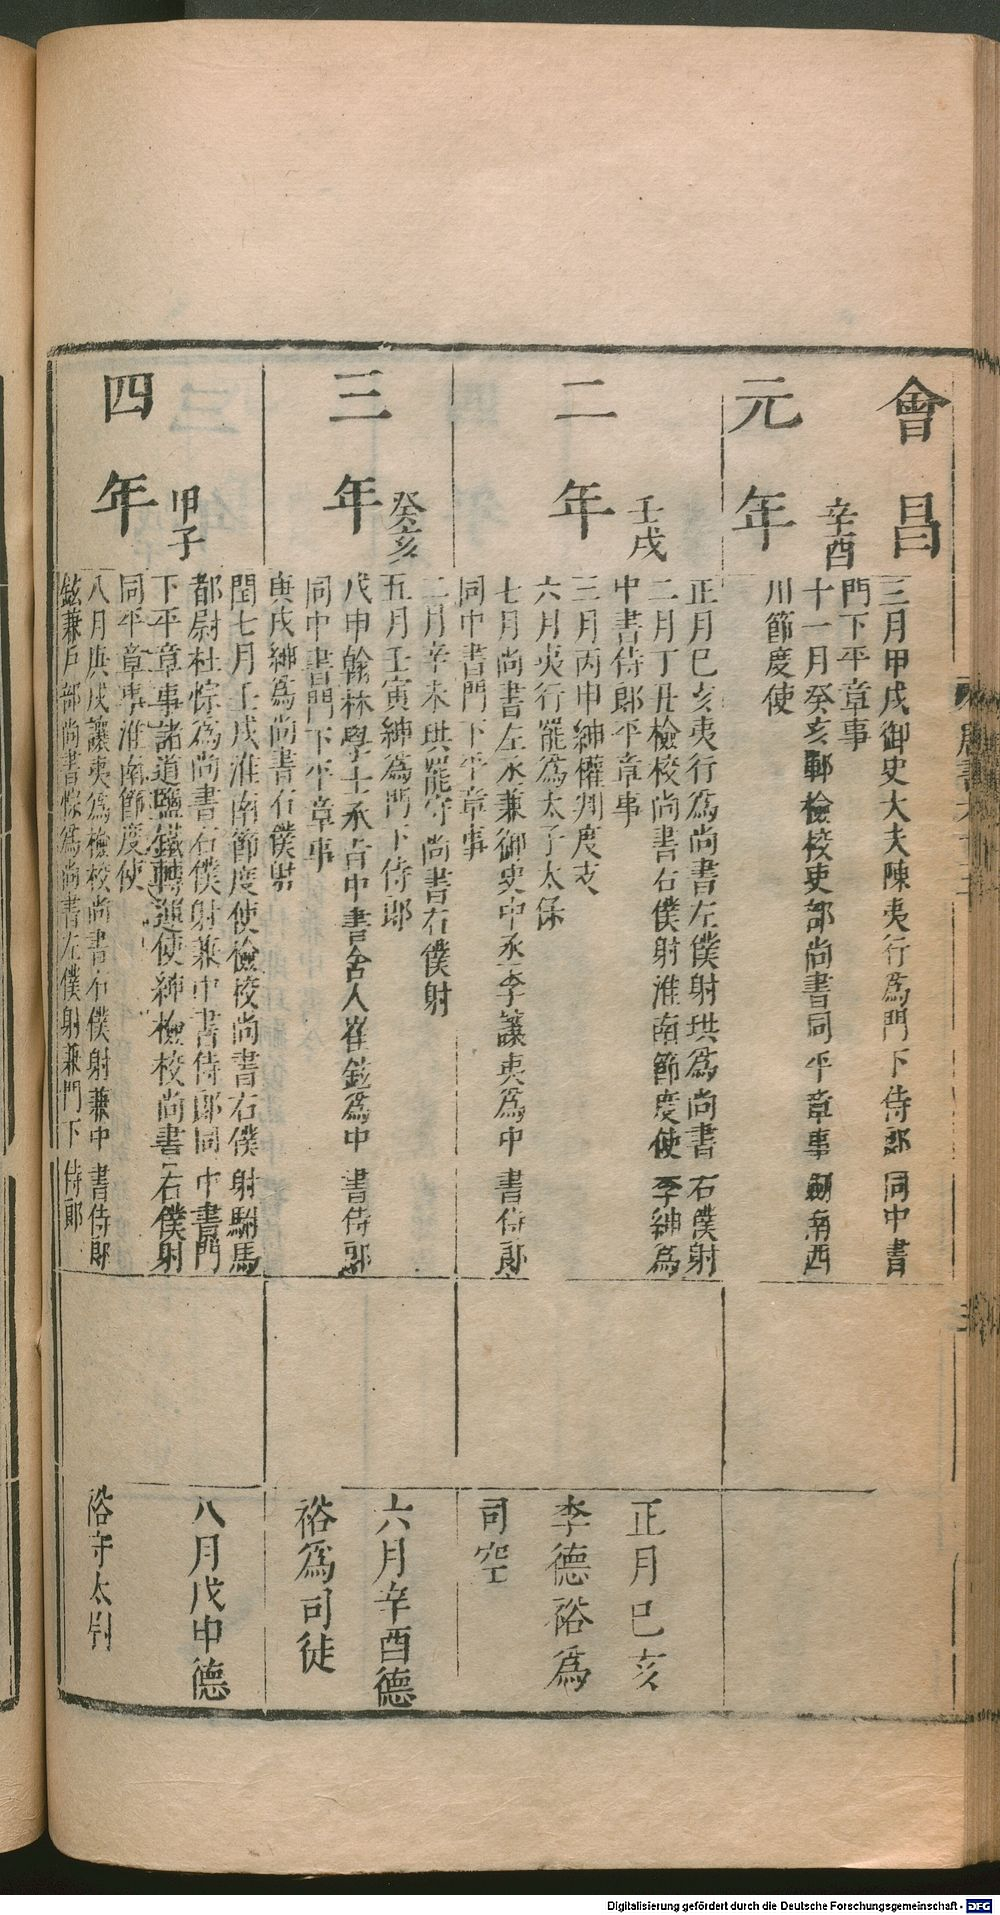 會昌
元年
辛酉
三月甲戌御史大夫陳夷行爲門下侍郎同中書
門下平章事
十一月癸亥鄲檢校吏部尚書同平章事劍南西
川節度使
二年
壬戌
正月巳亥夷行爲尚書左僕射珙爲尚書右僕射
二月丁丑檢校尚書右僕射淮南節度使李紳爲
中書侍郎平章事
三月丙申紳權判度支
六月夷行罷爲太子太保
七月尚書左丞兼御史中丞李讓夷爲中書侍郎
同中書門下平章事
正月巳亥
李德裕爲
司空
三年
癸亥
二月辛未珙罷守尚書右僕射
五月壬寅紳爲門下侍郎
戊申翰林學士承旨中書舍人崔鉉爲中書侍郎
同中書門下平章事
庚戌紳爲尚書右僕射
六月辛酉德
裕爲司徒
四年
甲子
閏七月壬戌淮南節度使檢校尚書右僕射駙馬
都尉杜悰爲尚書右僕射兼中書侍郎同中書門
下平章事諸道鹽鐵轉運使紳檢校尚書右僕射
同平章事淮南節度使
八月庚戌讓夷爲檢校尚書右僕射兼中書侍郎
鉉兼戶部尚書悰爲尚書左僕射兼門下侍郎
八月戊申德
裕守太
Digitalisierung gefördert durch die Deutsche Forschungsgemeinschaft - DFG